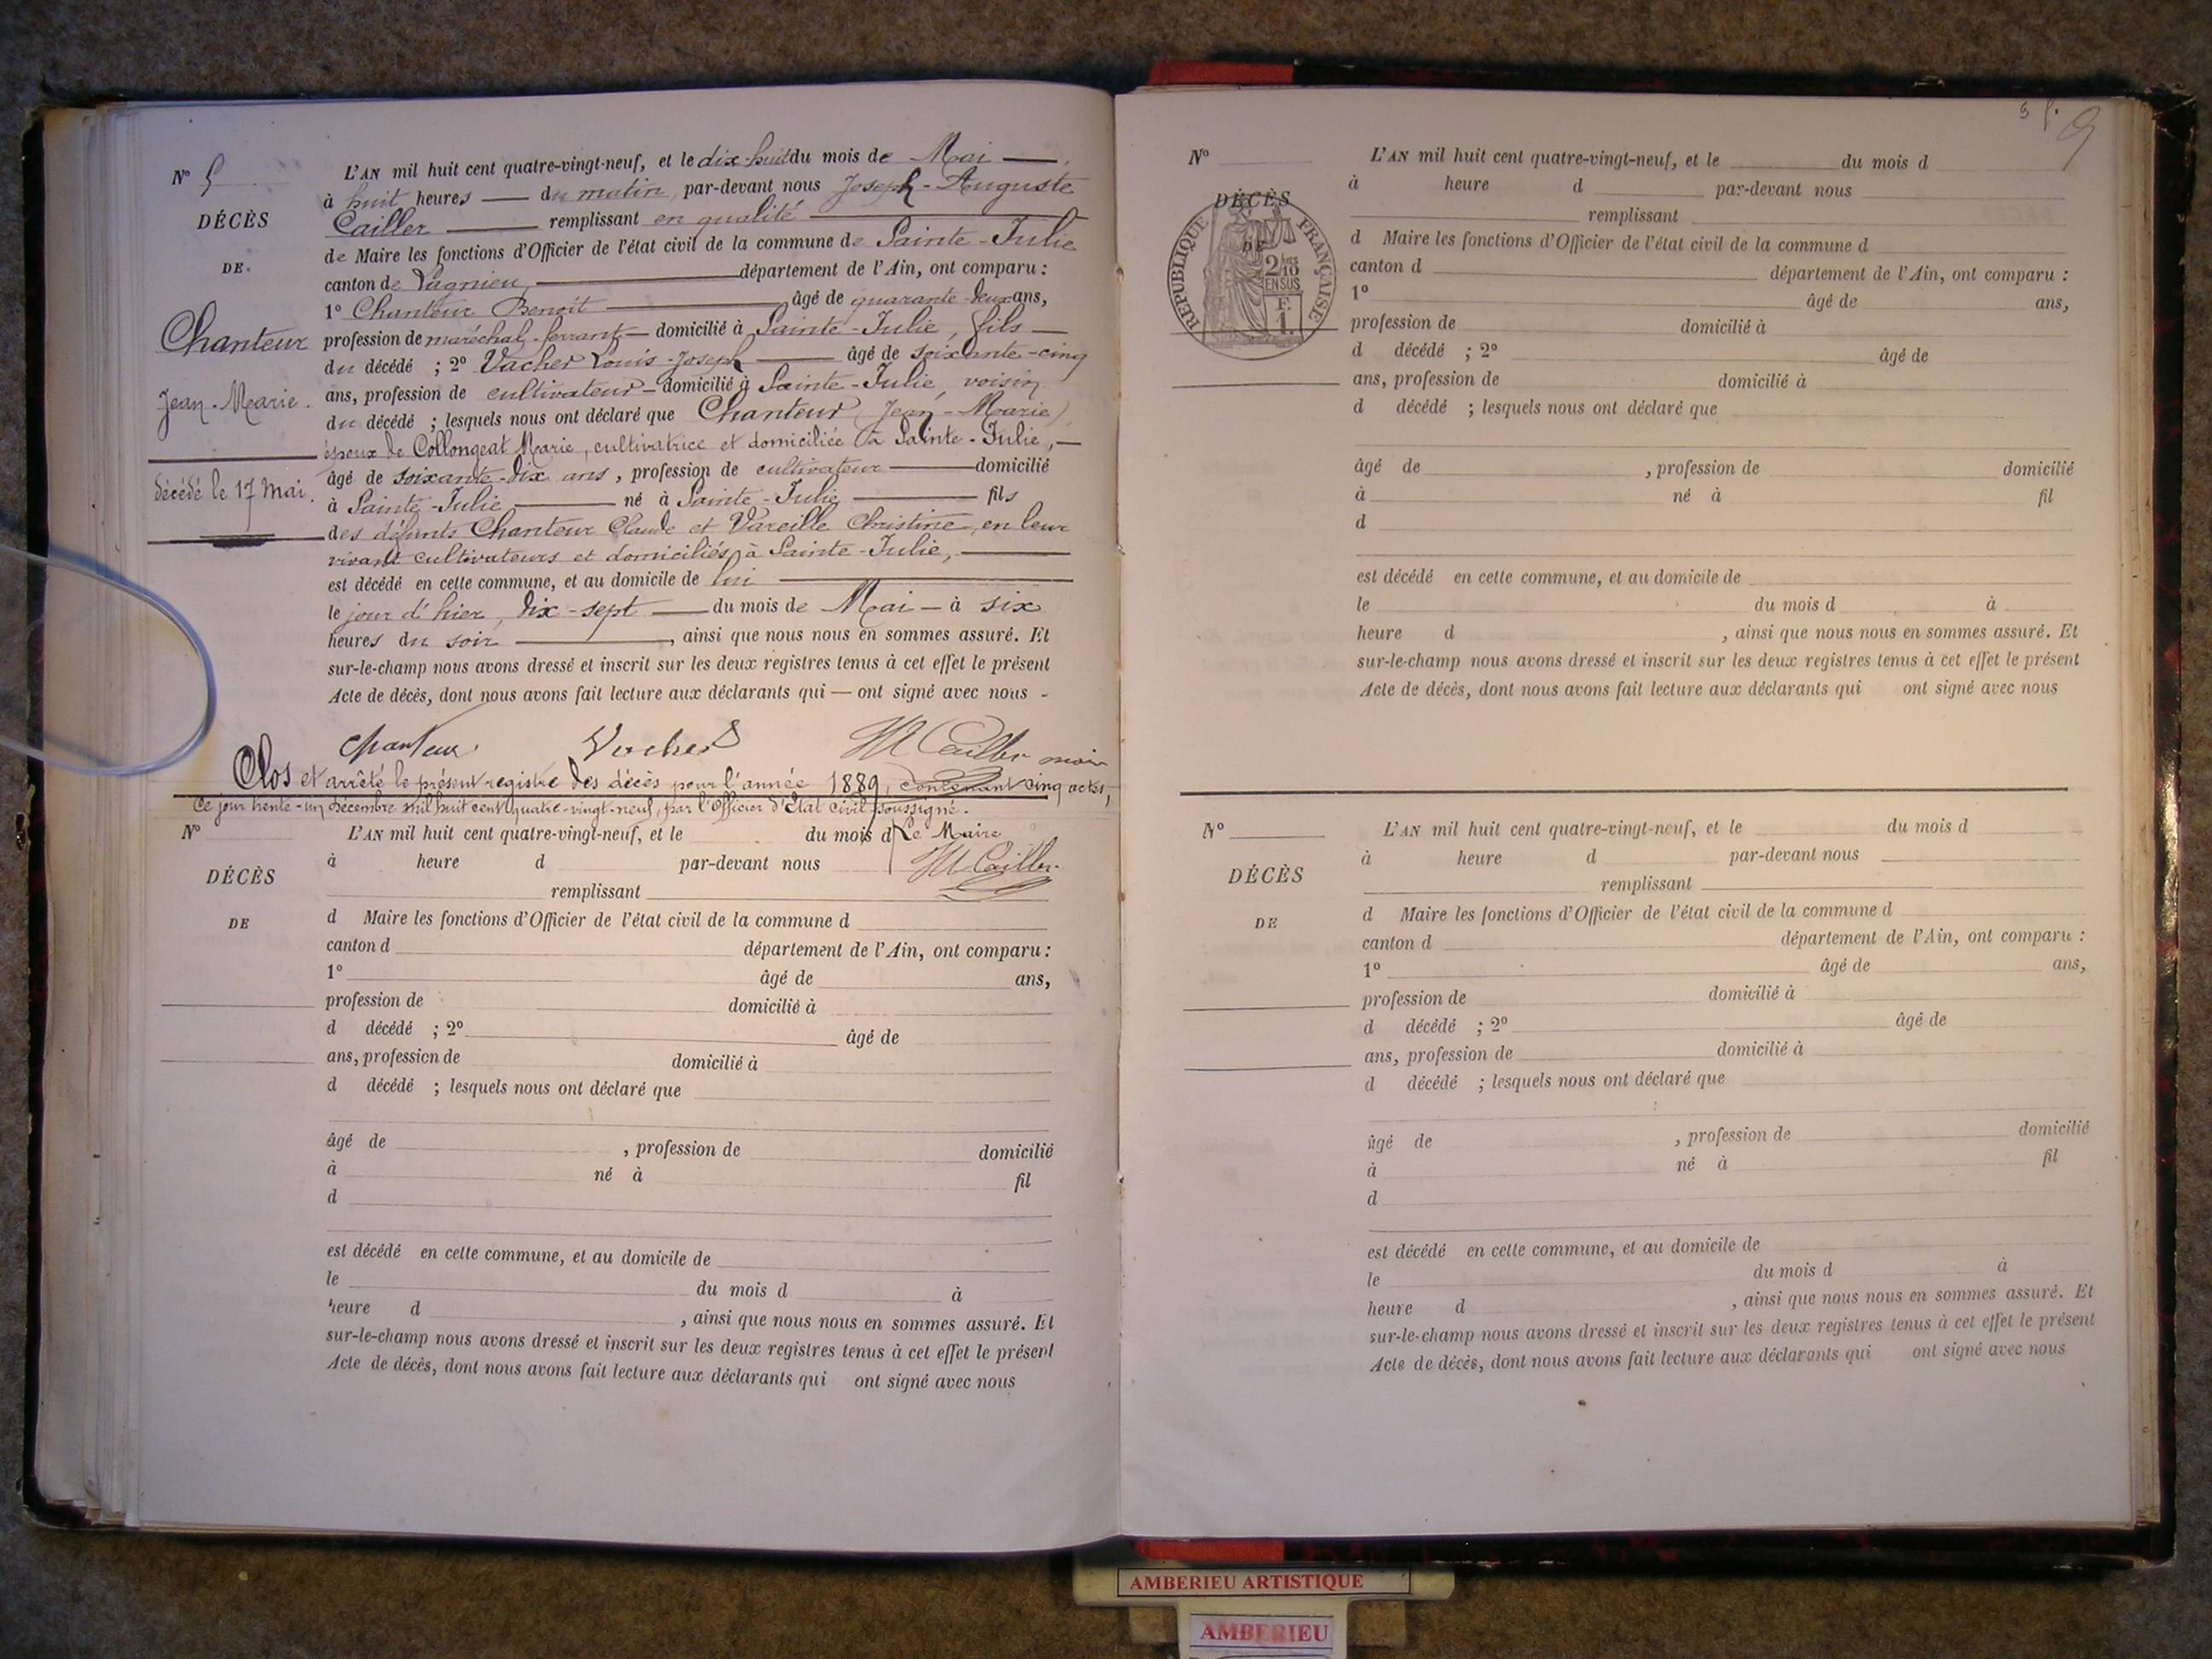 N° 5
DÉCÈS
DE.
Chanteur
Jean-Marie.
décédé le 17 Mai.
L'AN mil huit cent quatre-vingt-neuf, et le dix-huit du mois de Mai
à huit heures du matin, par-devant nous Joseph-Auguste
Cailler remplissant en qualité
de Maire les fonctions d'Officier de l'état civil de la commune de Sainte-Julie
canton de Lagnieu, département de l'Ain, ont comparu :
1° Chanteur Benoit âgé de quarante-deux ans,
profession de maréchal-ferrant domicilié à Sainte-Julie, fils
du décédé ; 2° Vacher Louis-Joseph âgé de soixante-cinq
ans, profession de cultivateur domicilié à Sainte-Julie, voisin
du décédé ; lesquels nous ont déclaré que Chanteur (Jean-Marie)
époux de Collongeat Marie, cultivatrice et domiciliée à Sainte-Julie,
âgé de soixante-dix ans, profession de cultivateur domicilié
à Sainte-Julie né à Sainte-Julie fils
des défunts Chanteur Claude et Vareille Christine, en leur
vivant cultivateurs et domiciliés à Sainte-Julie,
est décédé en cette commune, et au domicile de lui
le jour d'hier, dix-sept du mois de Mai à six
heures du soir, ainsi que nous nous en sommes assuré. Et
sur-le-champ nous avons dressé et inscrit sur les deux registres tenus à cet effet le présent
Acte de décès, dont nous avons fait lecture aux déclarants qui — ont signé avec nous -
Chanteur Vacher Cailler maire
Clos et arrêté le présent registre des décès pour l'année 1889, contenant cinq actes,
Ce jour trente-un Décembre mil huit cent quatre-vingt-neuf, par l'Officier d'Etat civil soussigné.
Le Maire
Cailler
N°
DÉCÈS
DE
L'AN mil huit cent quatre-vingt-neuf, et le du mois d
à heure d par-devant nous
remplissant
d Maire les fonctions d'Officier de l'état civil de la commune d
canton d département de l'Ain, ont comparu :
1° âgé de ans,
profession de domicilié à
d décédé ; 2° âgé de
ans, profession de domicilié à
d décédé ; lesquels nous ont déclaré que
âgé de , profession de domicilié
à né à fil
d
est décédé en cette commune, et au domicile de
le du mois d à
heure d , ainsi que nous nous en sommes assuré. Et
sur-le-champ nous avons dressé et inscrit sur les deux registres tenus à cet effet le présent
Acte de décès, dont nous avons fait lecture aux déclarants qui ont signé avec nous
9
N°
DÉCÈS
DE
RÉPUBLIQUE FRANÇAISE
2/10
EN SUS
F.
1.
L'AN mil huit cent quatre-vingt-neuf, et le du mois d
à heure d par-devant nous
remplissant
d Maire les fonctions d'Officier de l'état civil de la commune d
canton d département de l'Ain, ont comparu :
1° âgé de ans,
profession de domicilié à
d décédé ; 2° âgé de
ans, profession de domicilié à
d décédé ; lesquels nous ont déclaré que
âgé de , profession de domicilié
à né à fil
d
est décédé en cette commune, et au domicile de
le du mois d à
heure d , ainsi que nous nous en sommes assuré. Et
sur-le-champ nous avons dressé et inscrit sur les deux registres tenus à cet effet le présent
Acte de décès, dont nous avons fait lecture aux déclarants qui ont signé avec nous
N°
DÉCÈS
DE
L'AN mil huit cent quatre-vingt-neuf, et le du mois d
à heure d par-devant nous
remplissant
d Maire les fonctions d'Officier de l'état civil de la commune d
canton d département de l'Ain, ont comparu :
1° âgé de ans,
profession de domicilié à
d décédé ; 2° âgé de
ans, profession de domicilié à
d décédé ; lesquels nous ont déclaré que
âgé de , profession de domicilié
à né à fil
d
est décédé en cette commune, et au domicile de
le du mois d à
heure d , ainsi que nous nous en sommes assuré. Et
sur-le-champ nous avons dressé et inscrit sur les deux registres tenus à cet effet le présent
Acte de décès, dont nous avons fait lecture aux déclarants qui ont signé avec nous
AMBERIEU ARTISTIQUE
AMBERIEU